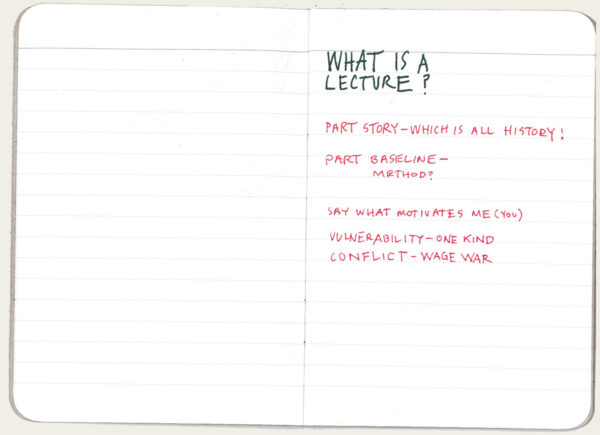 WHAT IS A
LECTURE?
PART STORY – WHICH IS ALL HISTORY!
PART BASELINE –
METHOD?
SAY WHAT MOTIVATES ME (YOU)
VULNERABILITY – ONE KIND
CONFLICT – WAGE WAR